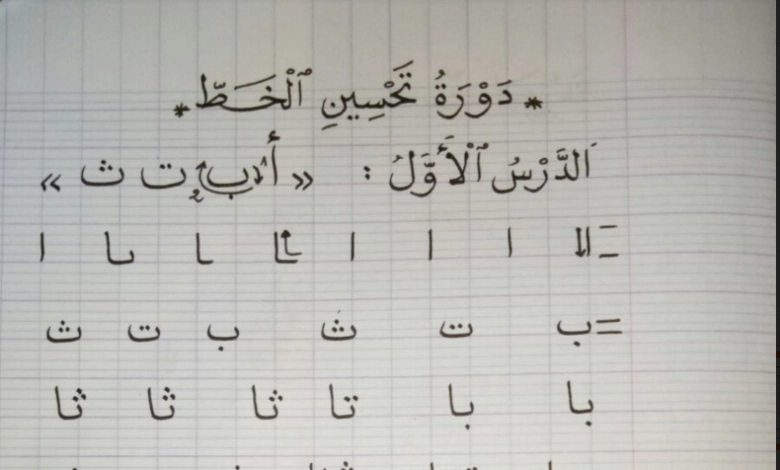 * دَوْرَةُ تَحْسِينِ ٱلْخَطِّ *
اَلدَّرْسُ ٱلْأَوَّلُ : « أ ب ت ث »
= ا ا ا ا ـا ـا ـىا ا
= ب ت ث ب ت ث
با با تا ثا ثا ثا